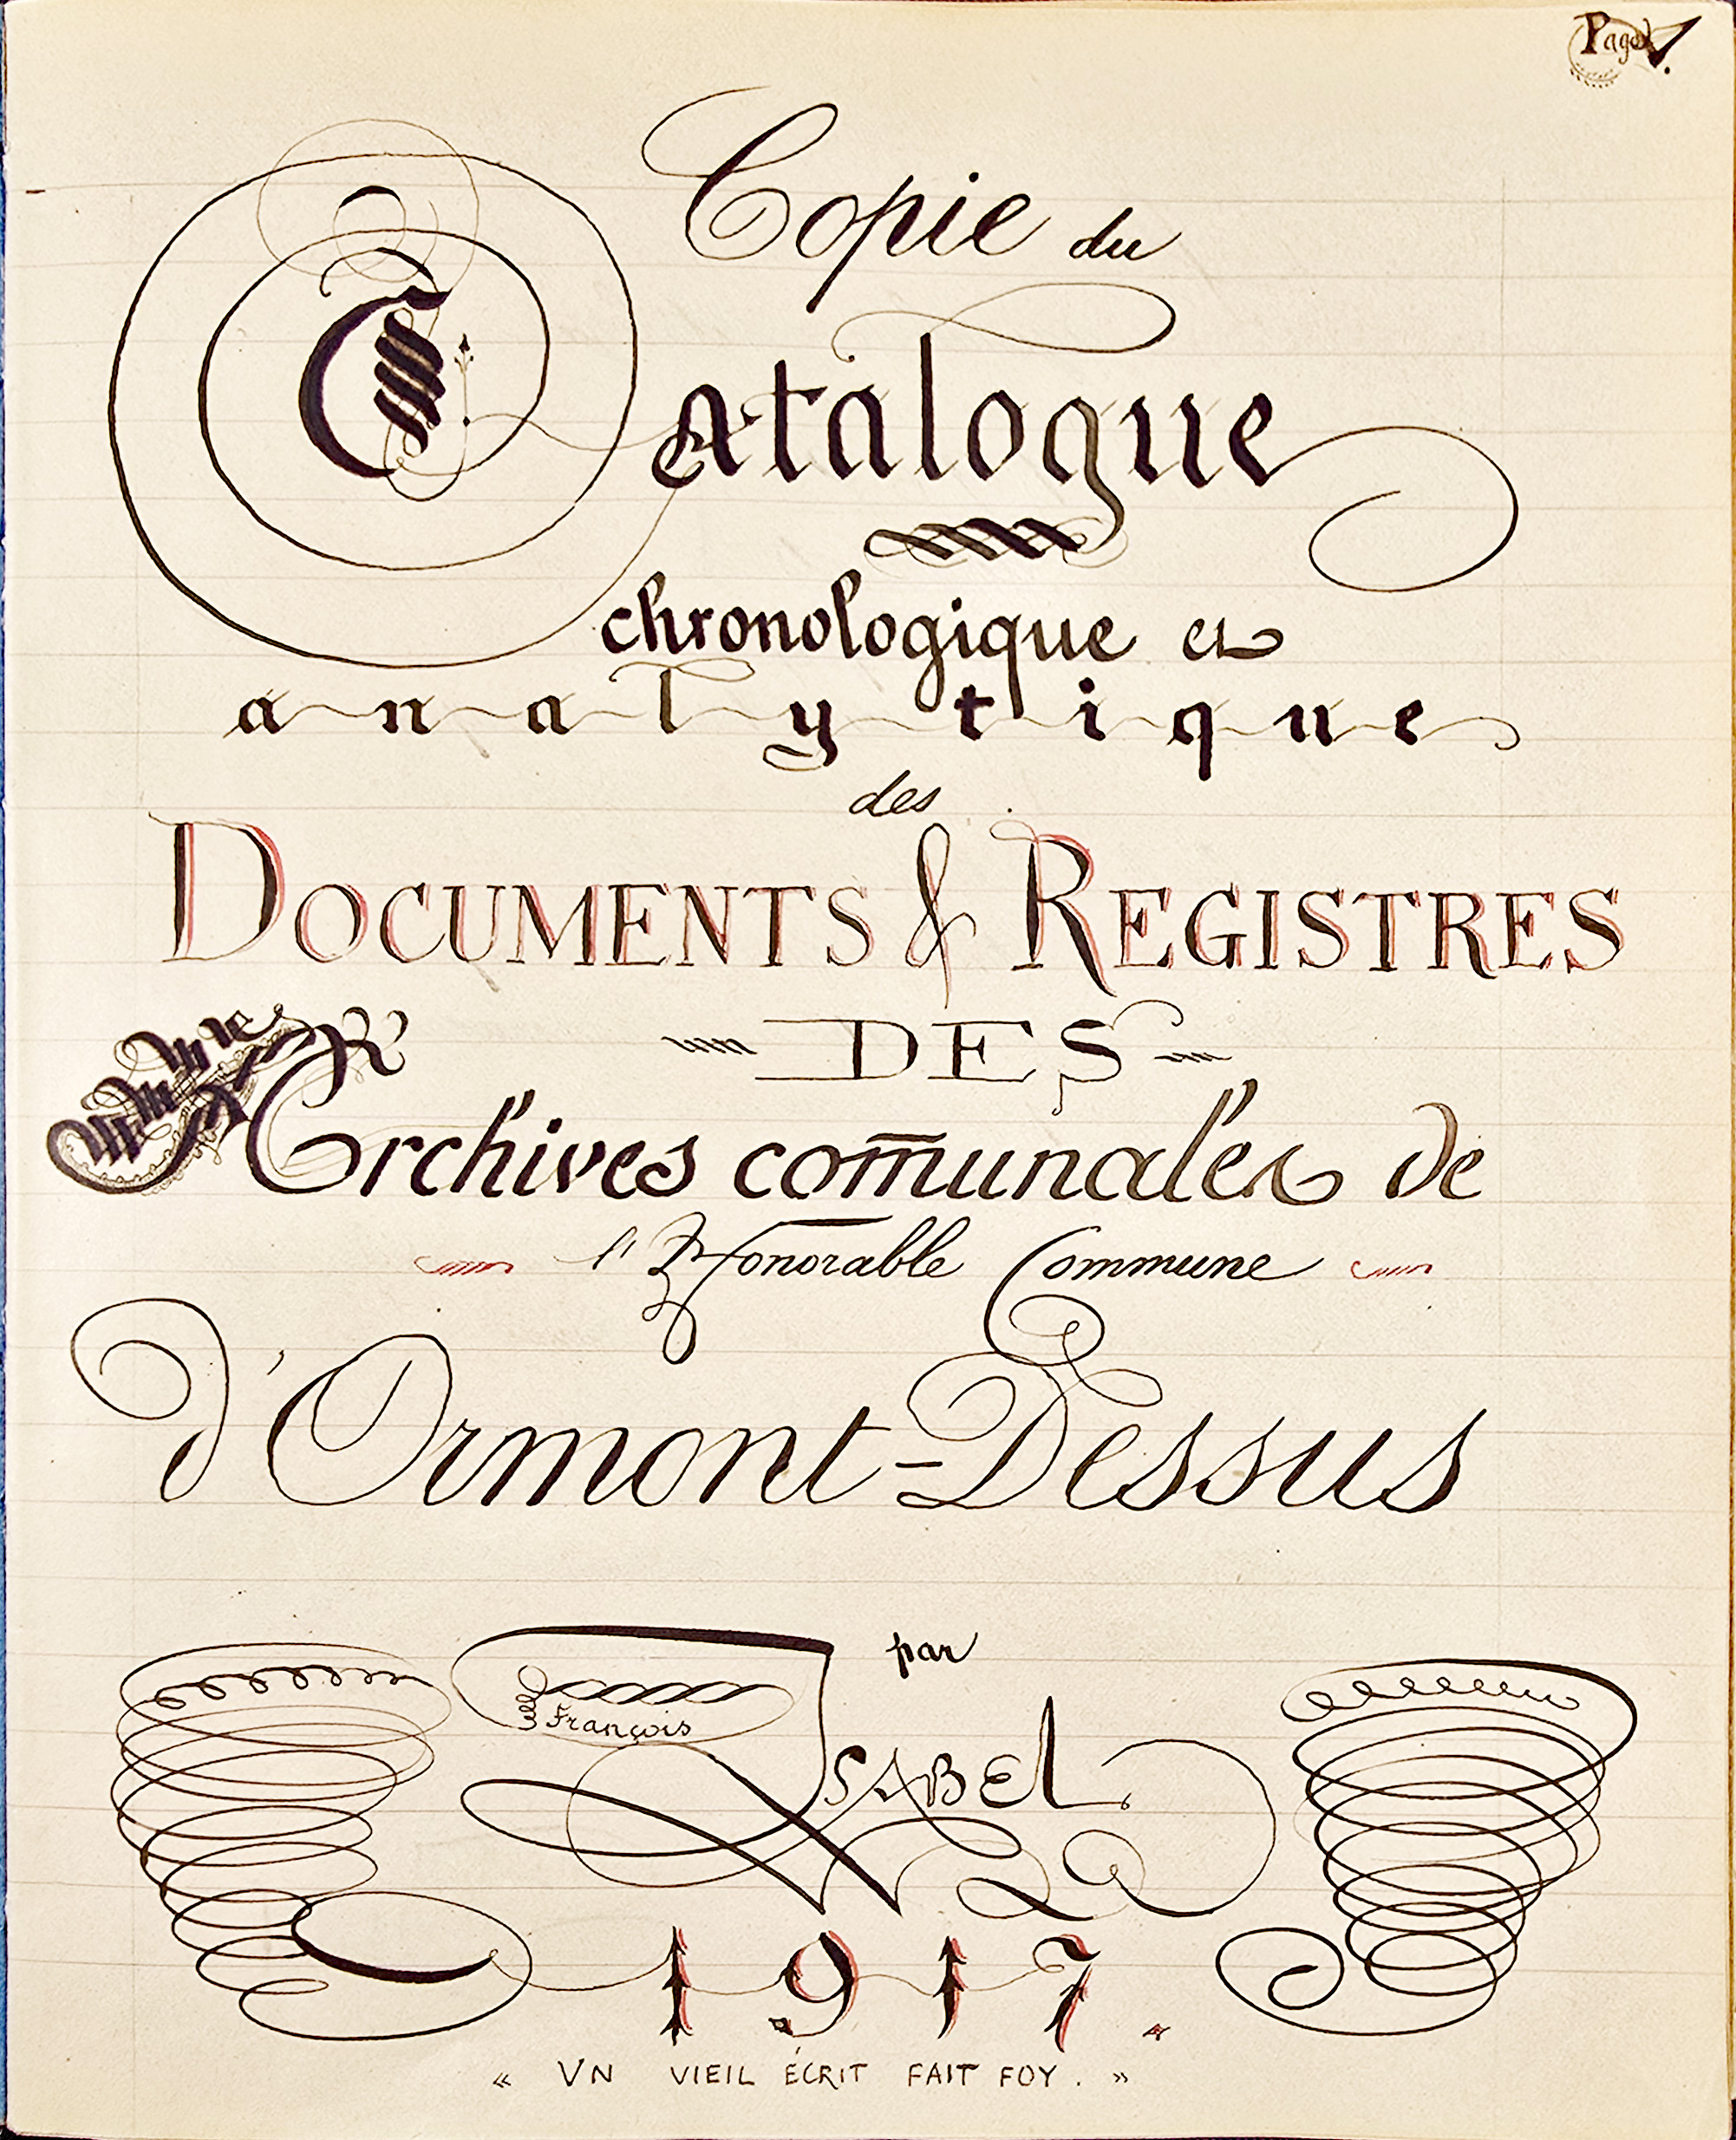 Page V.
Copie du
Catalogue
chronologique et
analytique
des
DOCUMENTS & REGISTRES
DES
Archives com̄unales de
l'Honorable Commune
d'Ormont-Dessus
par
François
ISABEL.
1917.
« VN VIEIL ÉCRIT FAIT FOY. »